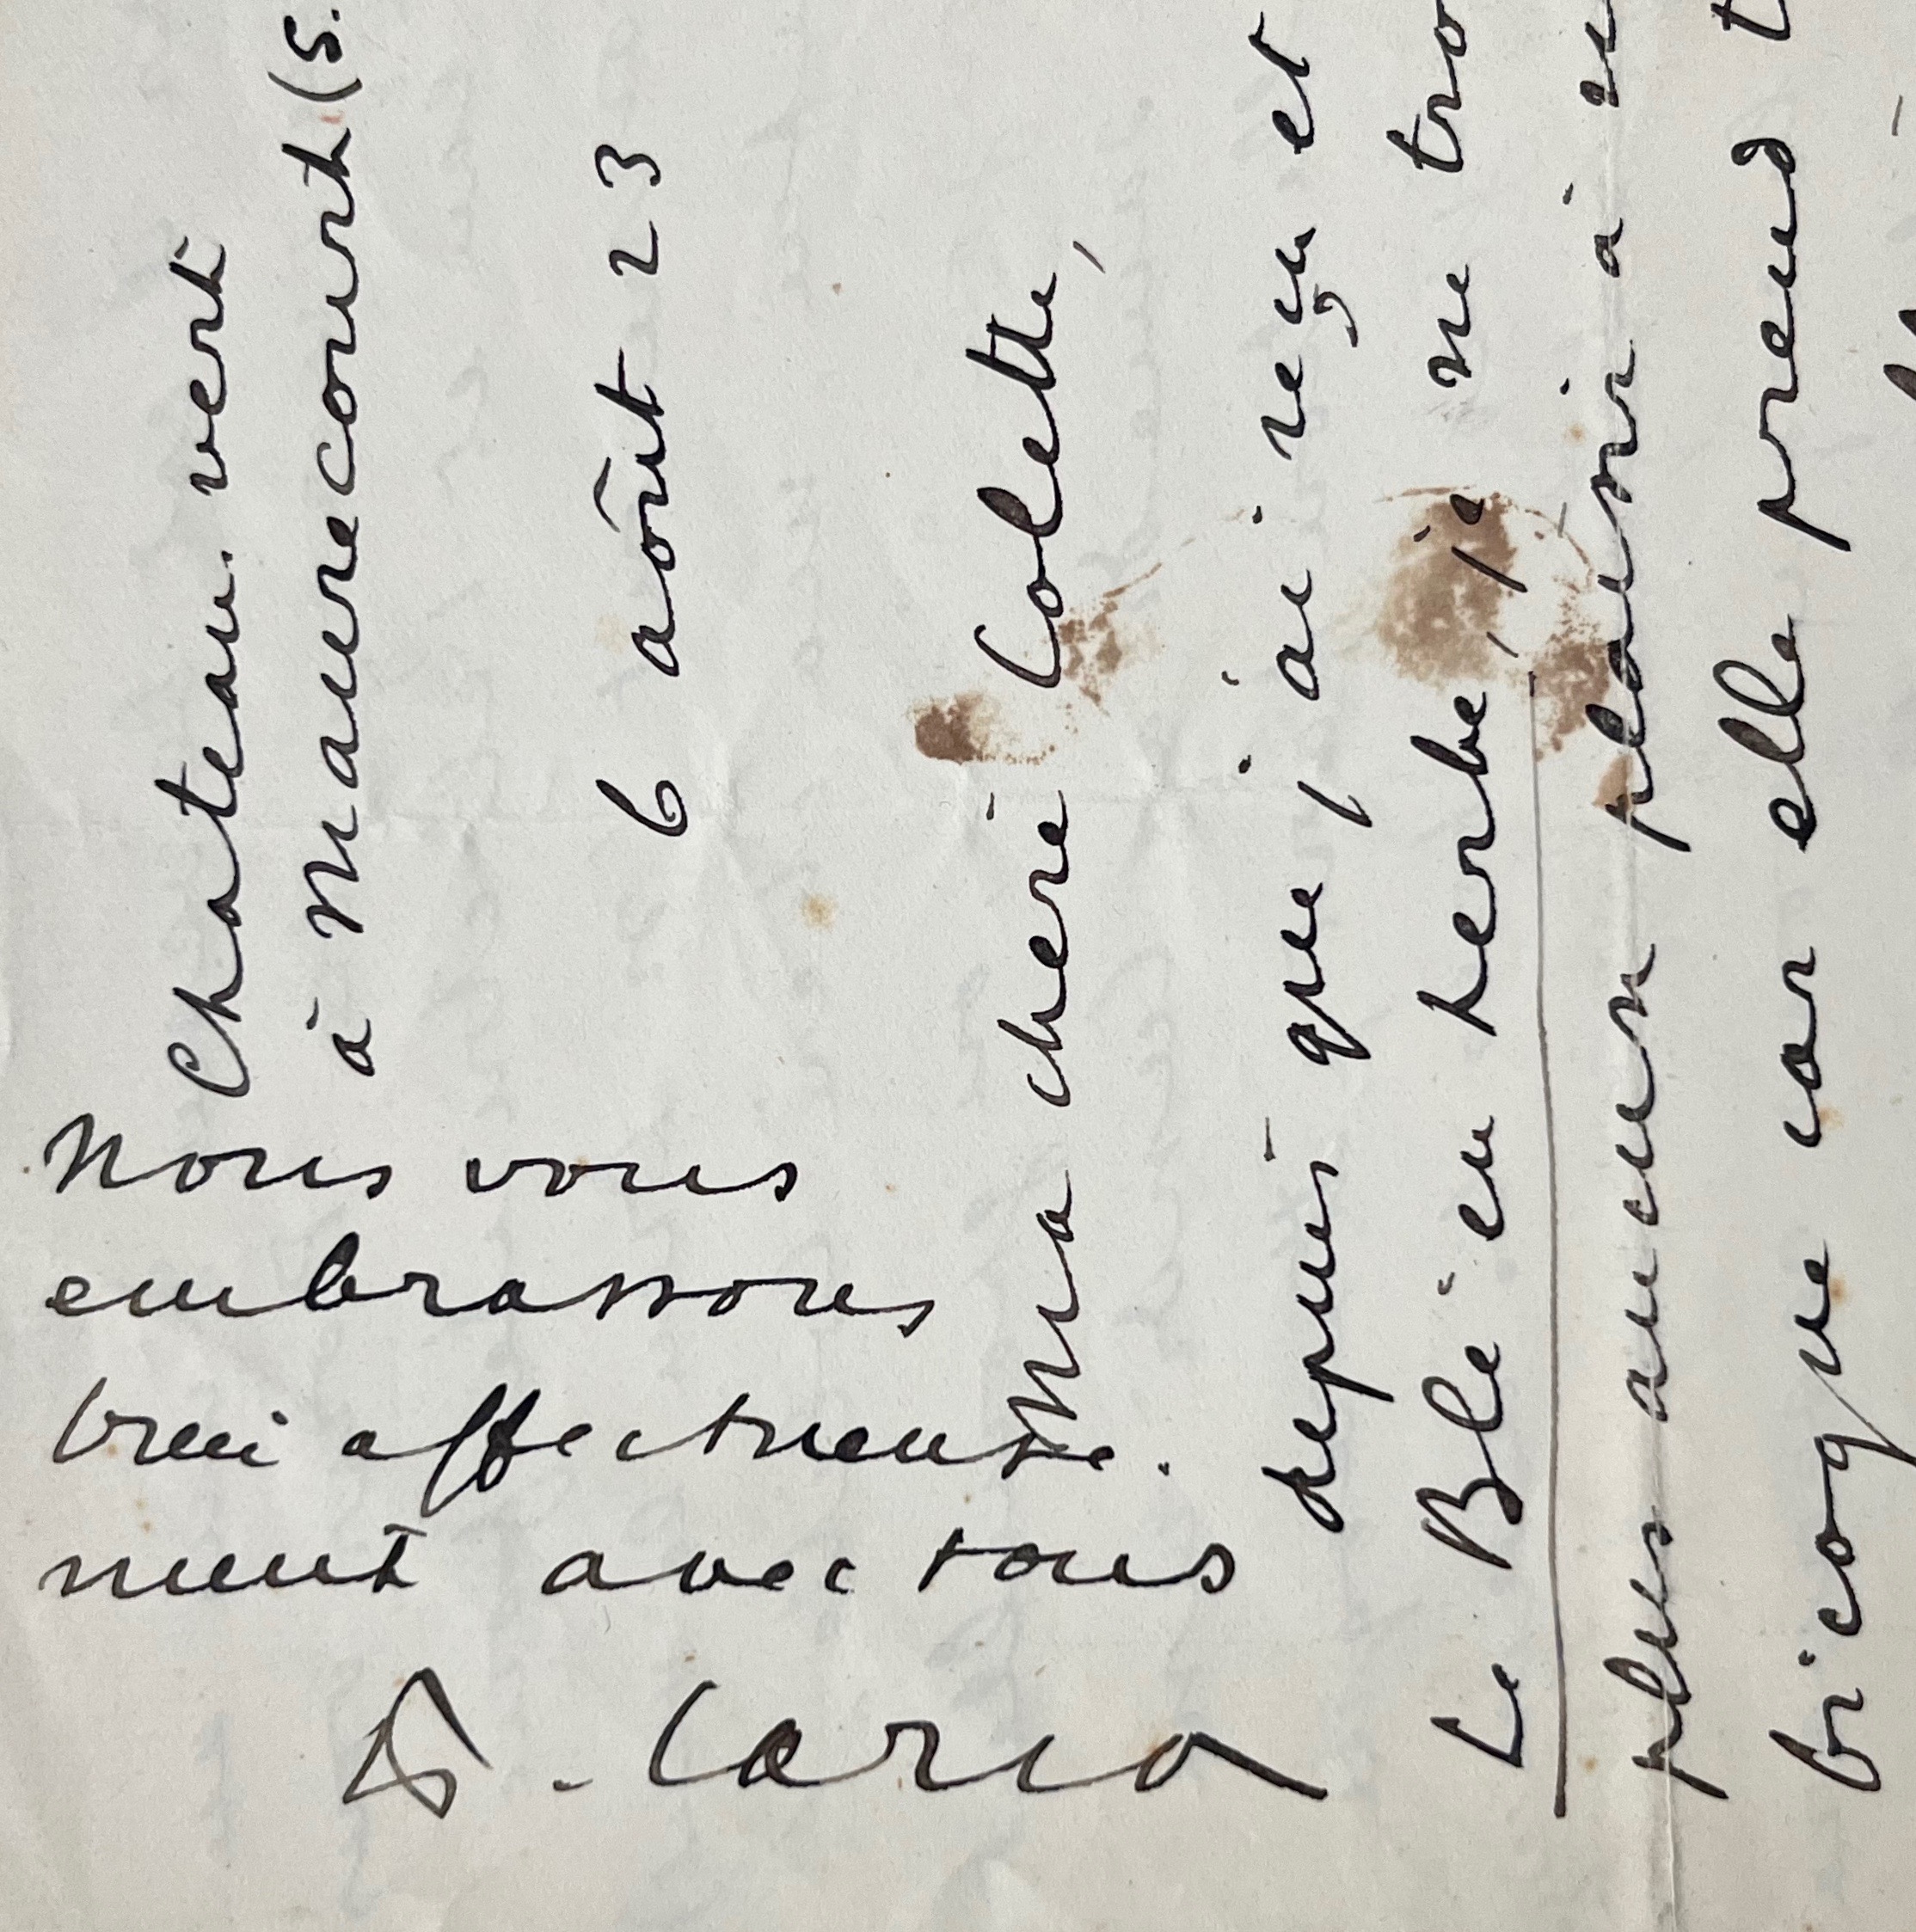 Chateau vert
à Maurecourt (S.
6 août 23
Ma chère Colette,
depuis que j'ai reçu et
Le Blé en herbe, je ne tro
plus aucun plaisir à
bicoque car elle prend t
Nous vous
embrassons
bien affectueuse.
ment avec tous
F. Carco